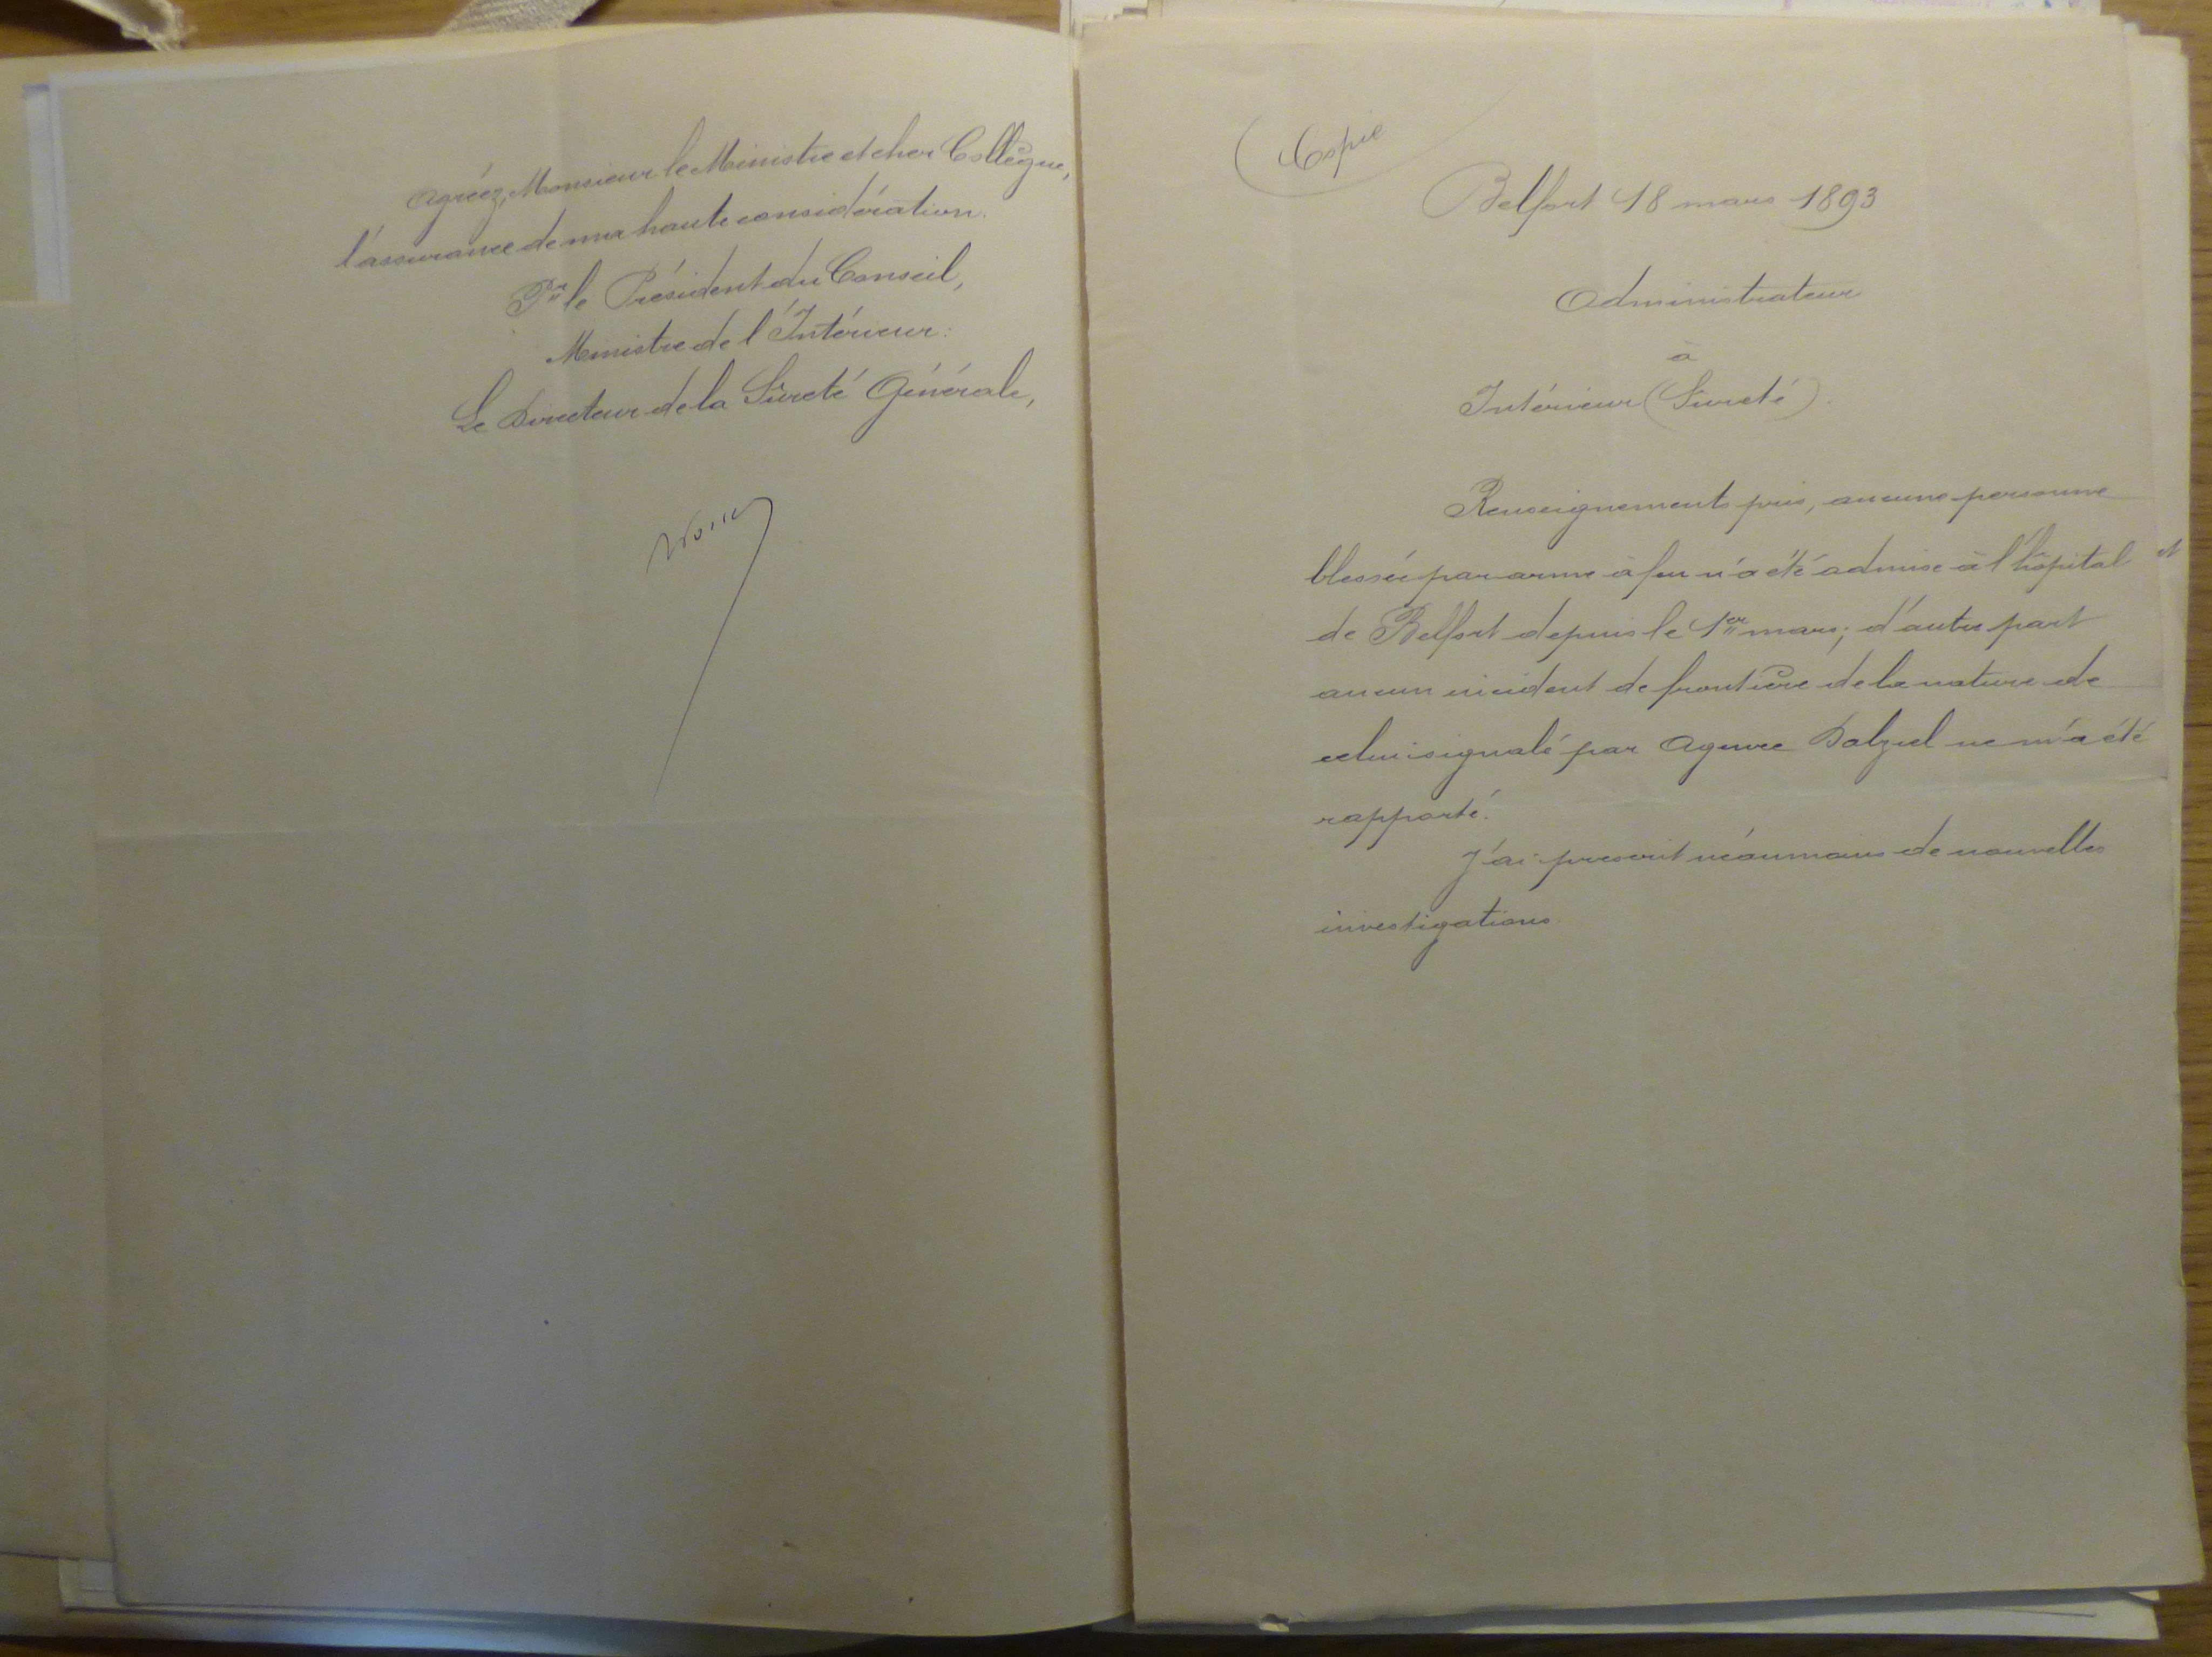 Agréez, Monsieur le Ministre et cher Collègue,
l'assurance de ma haute considération.
Pr le Président du Conseil,
Ministre de l'Intérieur:
Le Directeur de la Sûreté Générale,
Copie
Belfort 18 mars 1893
Administrateur
à
Intérieur (Sureté).
Renseignements pris, aucune personne
blessée par arme à feu n'a été admise à l'hôpital
de Belfort depuis le 1er mars; d'autre part
aucun incident de frontière de la nature de
celui signalé par Agence Dalziel ne m'a été
rapporté.
J'ai prescrit néanmoins de nouvelles
investigations